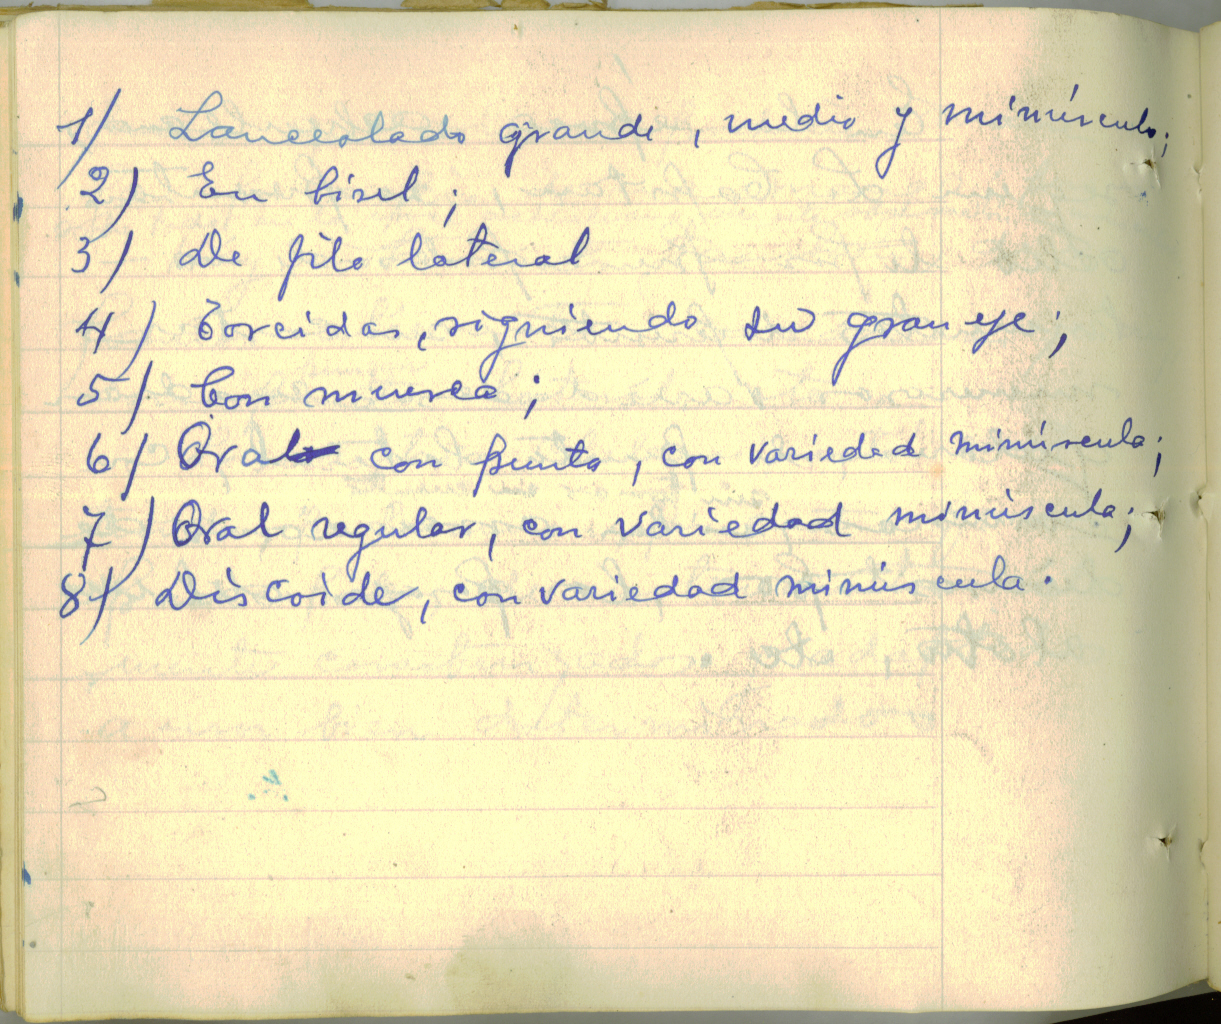 1) Lanceolado grande, medio y minúsculo;
2) En bisel;
3) De filo lateral
4) Torcidas, siguiendo su gran eje;
5) Con muesca;
6) Oval con punta, con variedad minúscula;
7) Oval regular, con variedad minúscula;
8) Discoide, con variedad minúscula.